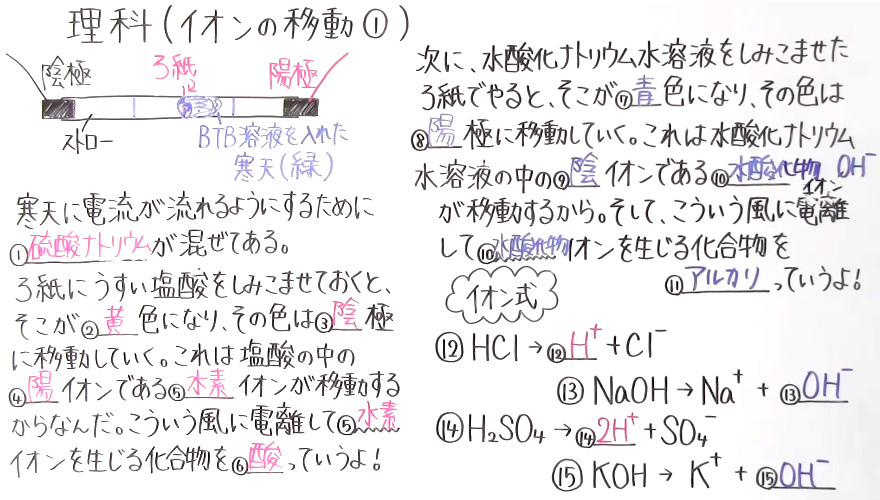 理科(イオンの移動①)
陰極
ろ紙
陽極
ストロー
BTB溶液を入れた
寒天(緑)
寒天に電流が流れるようにするために
①硫酸ナトリウムが混ぜてある。
ろ紙にうすい塩酸をしみこませておくと、
そこが②黄色になり、その色は③陰極
に移動していく。これは塩酸の中の
④陽イオンである⑤水素イオンが移動する
からなんだ。こういう風に電離して⑤水素
イオンを生じる化合物を⑥酸っていうよ!
次に、水酸化ナトリウム水溶液をしみこませた
ろ紙でやると、そこが⑦青色になり、その色は
⑧陽極に移動していく。これは水酸化ナトリウム
水溶液の中の⑨陰イオンである⑩水酸化物 OH⁻
イオン
が移動するから。そして、こういう風に電離
して⑩水酸化物イオンを生じる化合物を
⑪アルカリっていうよ!
イオン式
⑫HCl→⑫H⁺+Cl⁻
⑬NaOH→Na⁺+⑬OH⁻
⑭H₂SO₄→⑭2H⁺+SO₄⁻
⑮KOH→K⁺+⑮OH⁻